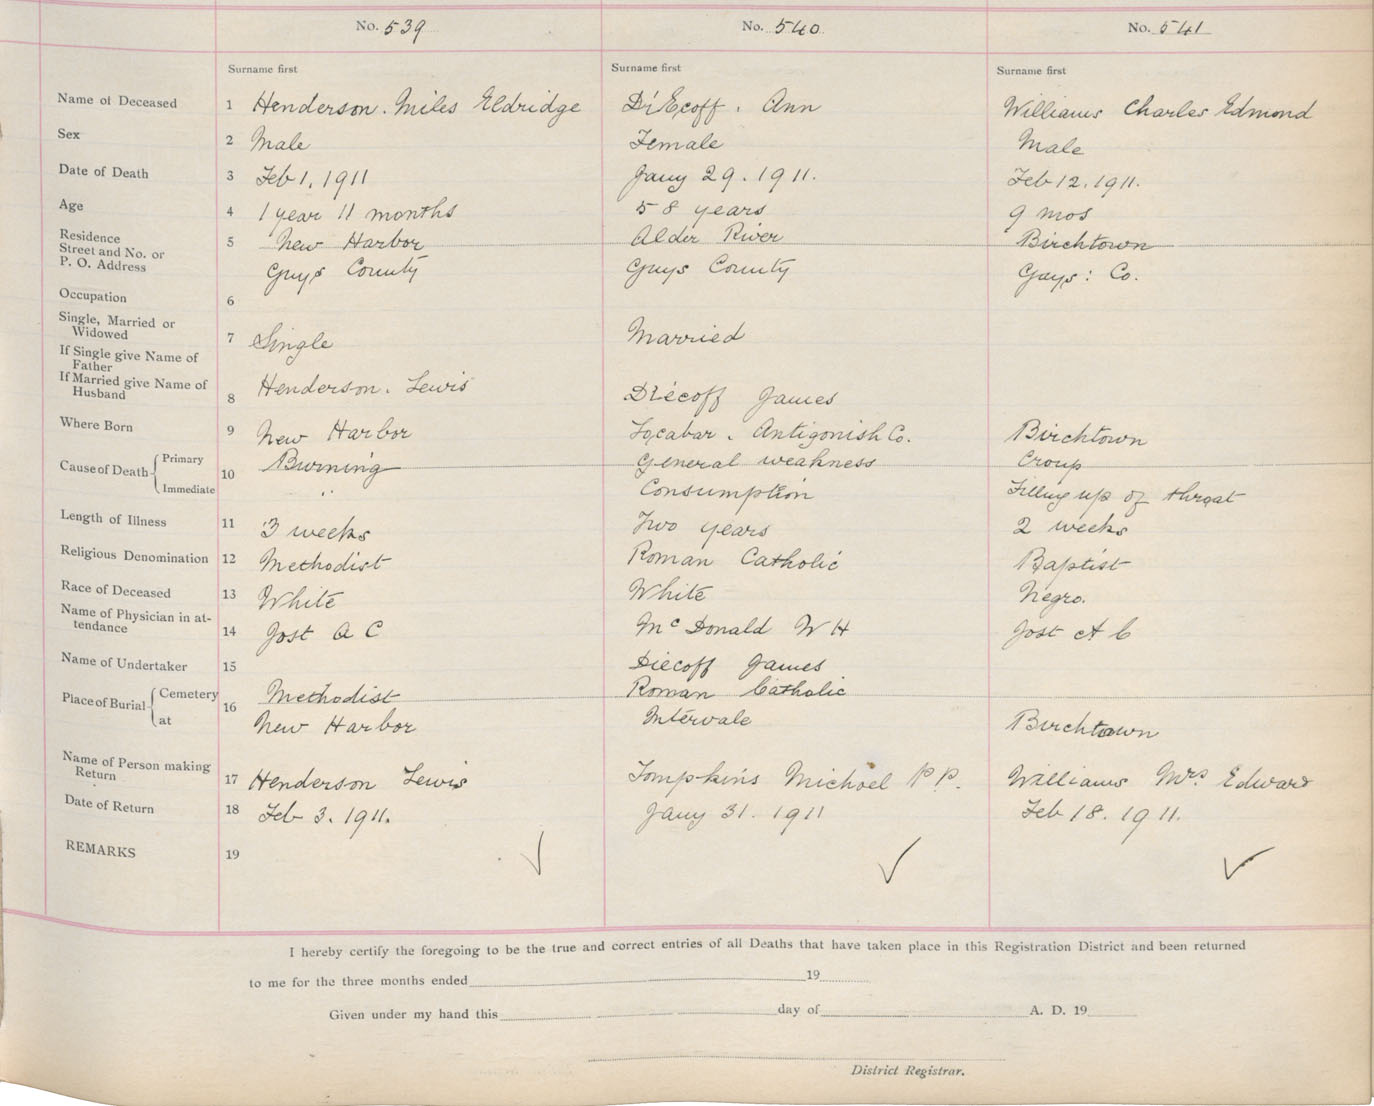 No. 539 No. 540 No. 541
Surname first Surname first Surname first
Name of Deceased 1 Henderson. Miles Eldridge DiEcoff. Ann Williams Charles Edmond
Sex 2 Male Female Male
Date of Death 3 Feb 1, 1911 Jany 29. 1911. Feb 12. 1911.
Age 4 1 year 11 months 58 years 9 mos
Residence
Street and No. or 5 New Harbor Alder River Birchtown
P. O. Address Guys County Guys County Guys: Co.
Occupation 6
Single, Married or
Widowed 7 Single Married
If Single give Name of
Father
If Married give Name of
Husband 8 Henderson. Lewis Diécoff James
Where Born 9 New Harbor Locabar. Antigonish Co. Birchtown
Cause of Death Primary 10 Burning General weakness Croup
Immediate " Consumption Filling up of throat
Length of Illness 11 3 weeks Two years 2 weeks
Religious Denomination 12 Methodist Roman Catholic Baptist
Race of Deceased 13 White White Negro.
Name of Physician in at-
tendance 14 Jost A C McDonald W H Jost A C
Name of Undertaker 15 Diecoff James
Place of Burial Cemetery 16 Methodist Roman Catholic
at New Harbor Intervale Birchtown
Name of Person making
Return 17 Henderson Lewis Tompkins Michael P P. Williams Mrs. Edward
Date of Return 18 Feb 3. 1911. Jany 31. 1911 Feb 18. 1911.
REMARKS 19 ✓ ✓ ✓
I hereby certify the foregoing to be the true and correct entries of all Deaths that have taken place in this Registration District and been returned
to me for the three months ended 19
Given under my hand this day of A. D. 19
District Registrar.